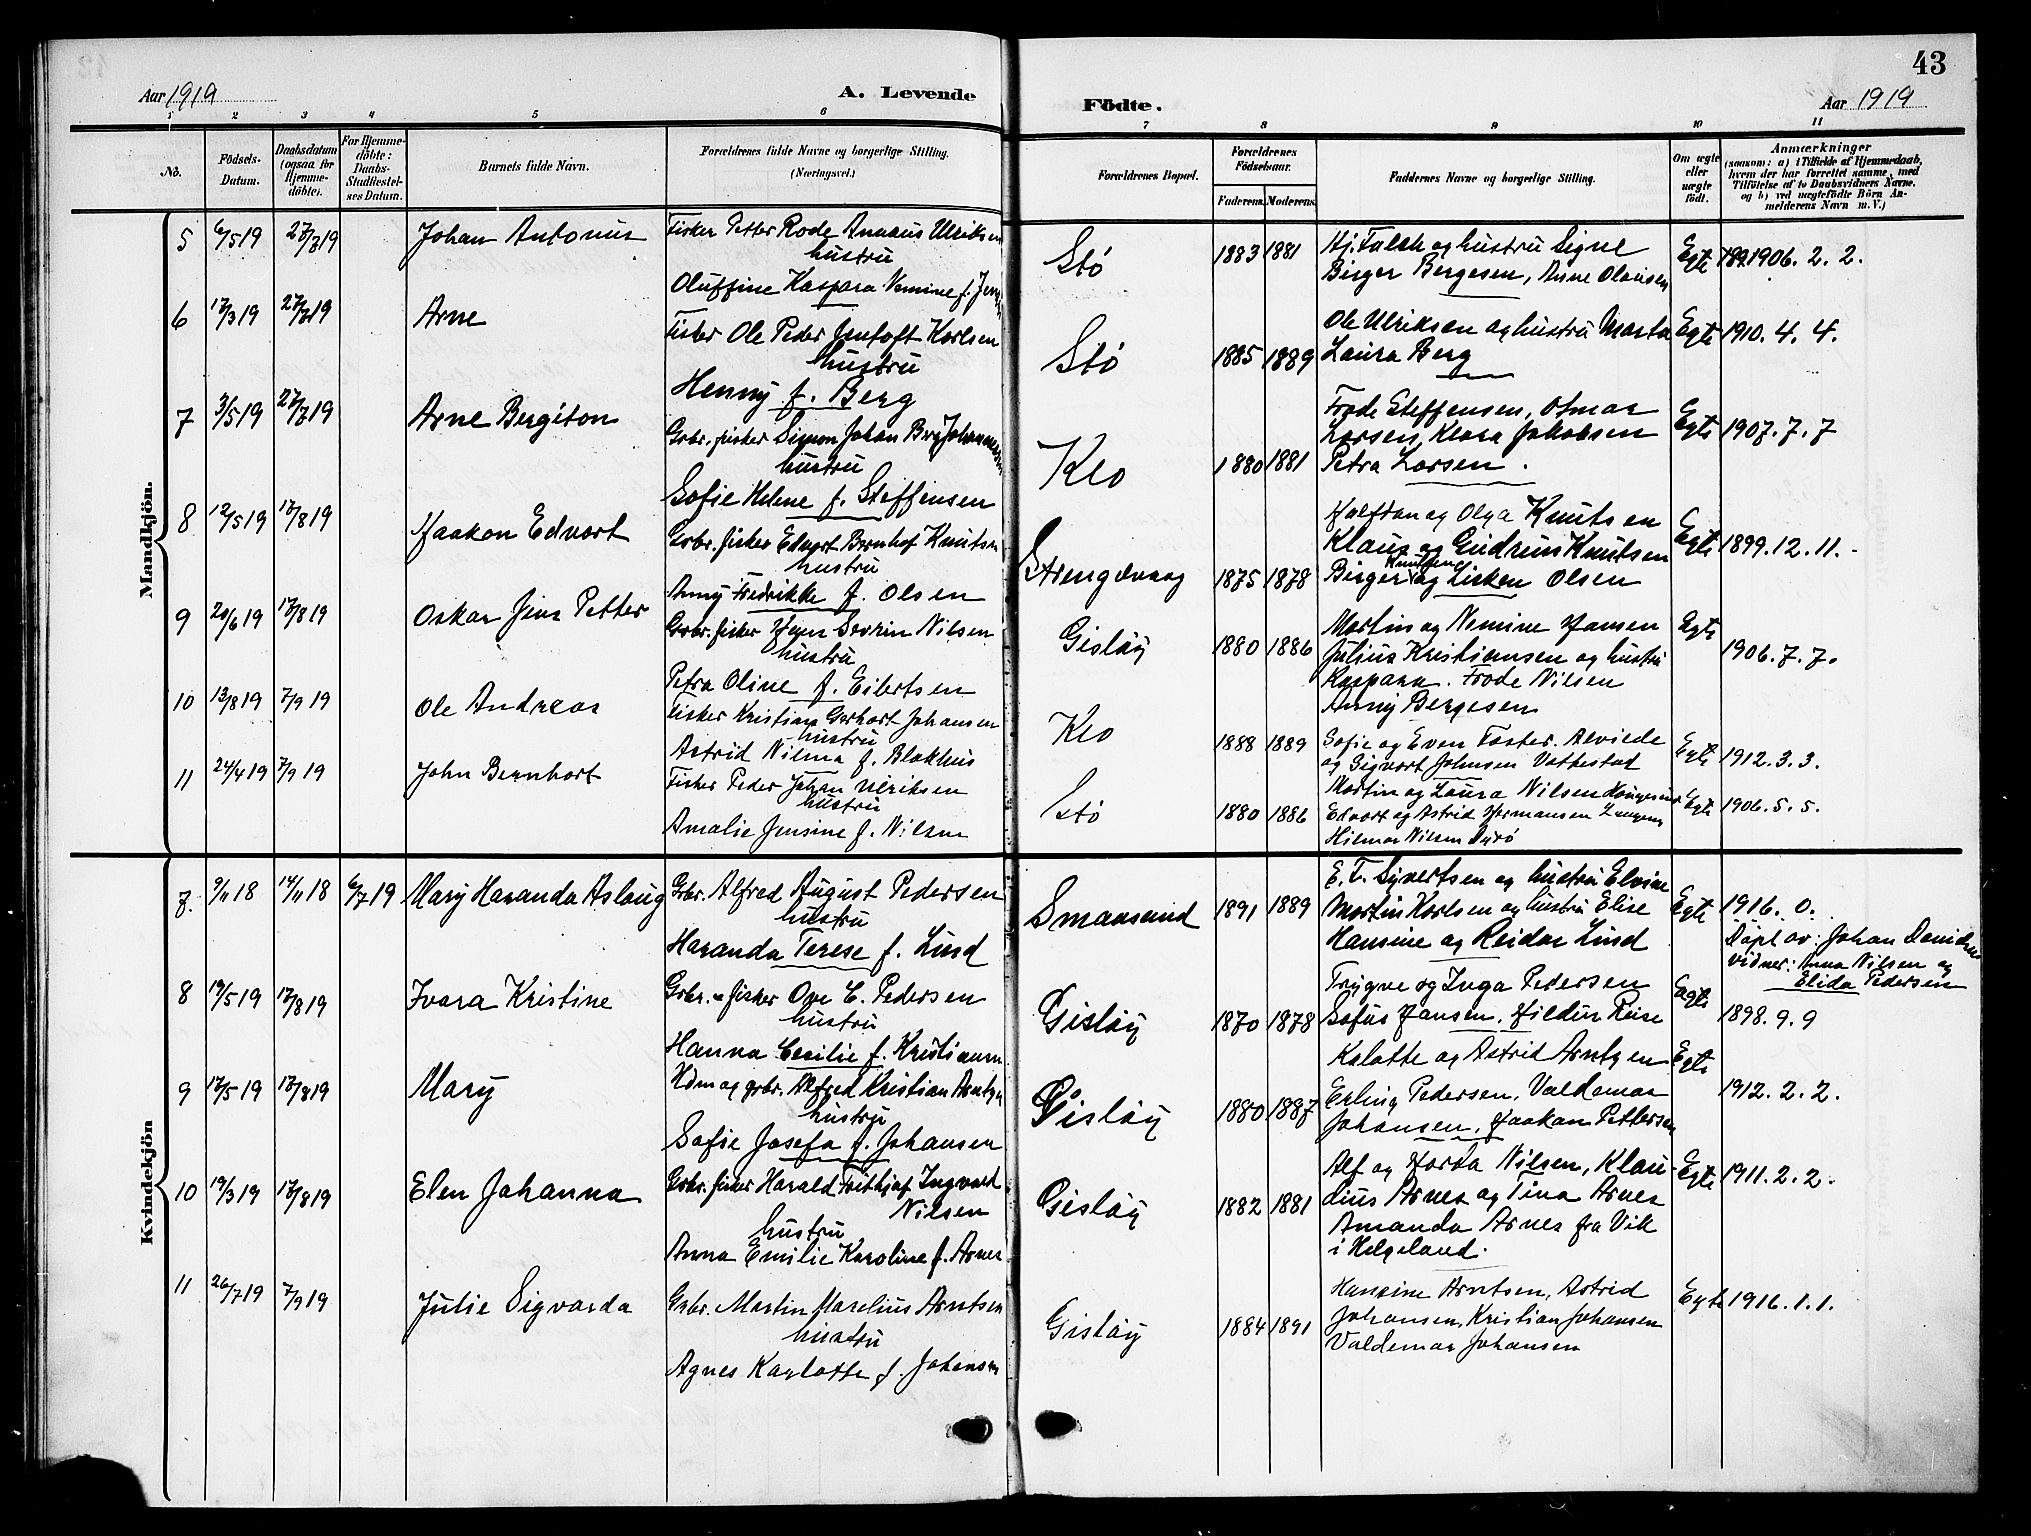 43
Aar 1919
A. Levende
Födte.
Aar 1919
1 2 3 4 5 6 7 8 9 10 11
No.
Födsels-
Datum.
Daabsdatum
(ogsaa for
Hjemme-
döbte).
For Hjemme-
döbte:
Daabs-
Stadfestel-
ses Datum.
Barnets fulde Navn.
Forældrenes fulde Navne og borgerlige Stilling.
(Næringsvei.)
Forældrenes Bopæl.
Forældrenes
Födselsaar.
Faderens. Moderens.
Faddernes Navne og borgerlige Stilling.
Om ægte
eller
uægte
födt.
Anmærkninger
(saasom: a) i Tilfælde af Hjemmedaab,
hvem der har forrettet samme, med
Tilföielse af to Daabsvidners Navne.
og b) ved uægtefödte Börn An-
melderens Navn m. V.)
Mandkjön.
5 6/5 19 27/7 19 Johan Antonius
Fisker Petter Rode Annæus Ulriksen
hustru
Oluffine Kaspara Nemine f.
Stö 1883 1881
Hj. Falch og hustru Signe
Birger Bergesen, Anne Olausen
Egte 1906. 2. 2.
6 17/3 19 27/7 19 Arne
Fisker Ole Peder Jentoft Karlsen
hustru
Henny f. Berg
Stö 1885 1889
Ole Ulriksen og hustru Marta
Laura Berg
Egte 1910. 4. 4.
7 3/5 19 27/7 19 Arne Bergiton
Grbr. fisker Simon Johan Berg Johannessen
hustru
Sofie Helene f. Steffensen
Klo 1880 1881
Frode Steffensen, Otmar
Larsen, Klara Jakobsen
Petra Larsen.
Egte 1907. 7. 7
8 12/5 19 17/8 19 Haakon Edvart
Grbr. fisker Edvart Bernhof Knutsen
hustru
Anny Fredrikke f. Olsen
Strengdvaag 1875 1878
Halfdan og Olga Knutsen
Klaus og Gudrun Knutsen
Birger og Lisken Olsen
Egte 1899. 12. 11.
9 20/6 19 17/8 19 Oskar Jens Petter
Grbr. fisker Hejer Sevrin Nilsen
hustru
Petra Oline f. Eilertsen
Gislöy 1880 1886
Martin og Nemine Hansen
Julius Kristiansen og hustru
Kaspara. Frode Nilsen
Anny Bergesen
Egte 1906. 7. 7.
10 13/8 19 7/9 19 Ole Andreas
Fisker Kristian Gerhart Johansen
hustru
Astrid Nilma f. Blokhus
Klo 1888 1889
Sofie og Even Toften. Alvilde
og Sigvart Johnsen Vottestad
Egte 1912. 3. 3.
11 24/4 19 7/9 19 John Bernhart
Fisker Peder Johan Ulriksen
hustru
Amalie Jensine f. Nilsen
Stö 1880 1886
Martin og Laura Nilsen
Edvart og Astrid Hermansen
Hilmar Nilsen Dyrö
Egte 1906. 5. 5.
Kvindekjön
7. 9/11 18 14/11 18 6/7 19 Mary Haranda Aslaug
Grbr. Alfred August Pedersen
hustru
Haranda Terese f. Lind
Smaasund 1891 1889
E. T. Syvertsen og hustru Elvine
Martin Karlsen og hustru Elise
Hansine og Reidar Lind
Egte 1916. 0.
Döpt av: Johan Davidsen
vidner: Anna Nilsen og
Elida Pedersen
8 19/5 19 17/8 19 Ivara Kristine
Grbr. - fisker Ove C. Pedersen
hustru
Hanna Cecilie f. Kristiansen
Gislöy 1870 1878
Trygve og Inga Pedersen
Sofus Hansen. Hildur Reise
Egte 1898. 9. 9
9 17/5 19 17/8 19 Mary
Kdm og grbr. Alfred Kristian Arntzen
hustru
Sofie Josefa f. Johansen
Gislöy 1880 1887
Kalotte og Astrid Arntzen
Erling Pedersen, Valdemar
Johansen, Haakan Pettersen
Egte 1912. 2. 2.
10 19/3 19 17/8 19 Elen Johanna
Grbr. fisker Harald Frithjof Ingvald
Nilsen
hustru
Anna Emilie Karoline f. Arnes
Gislöy 1882 1881
Alf og Horda Nilsen, Klau-
dius Arnes og Tina Arnes
Amanda Arnes fra Vik
i Helgeland.
Egte 1911. 2. 2.
11 26/7 19 7/9 19 Julie Sigvarda
Grbr. Martin Marelius Arntsen
hustru
Agnes Karlotte f. Johansen
Gislöy 1884 1891
Hansine Arntsen, Astrid
Johansen, Kristian Johansen
Valdemar Johansen
Egte 1916. 1. 1.